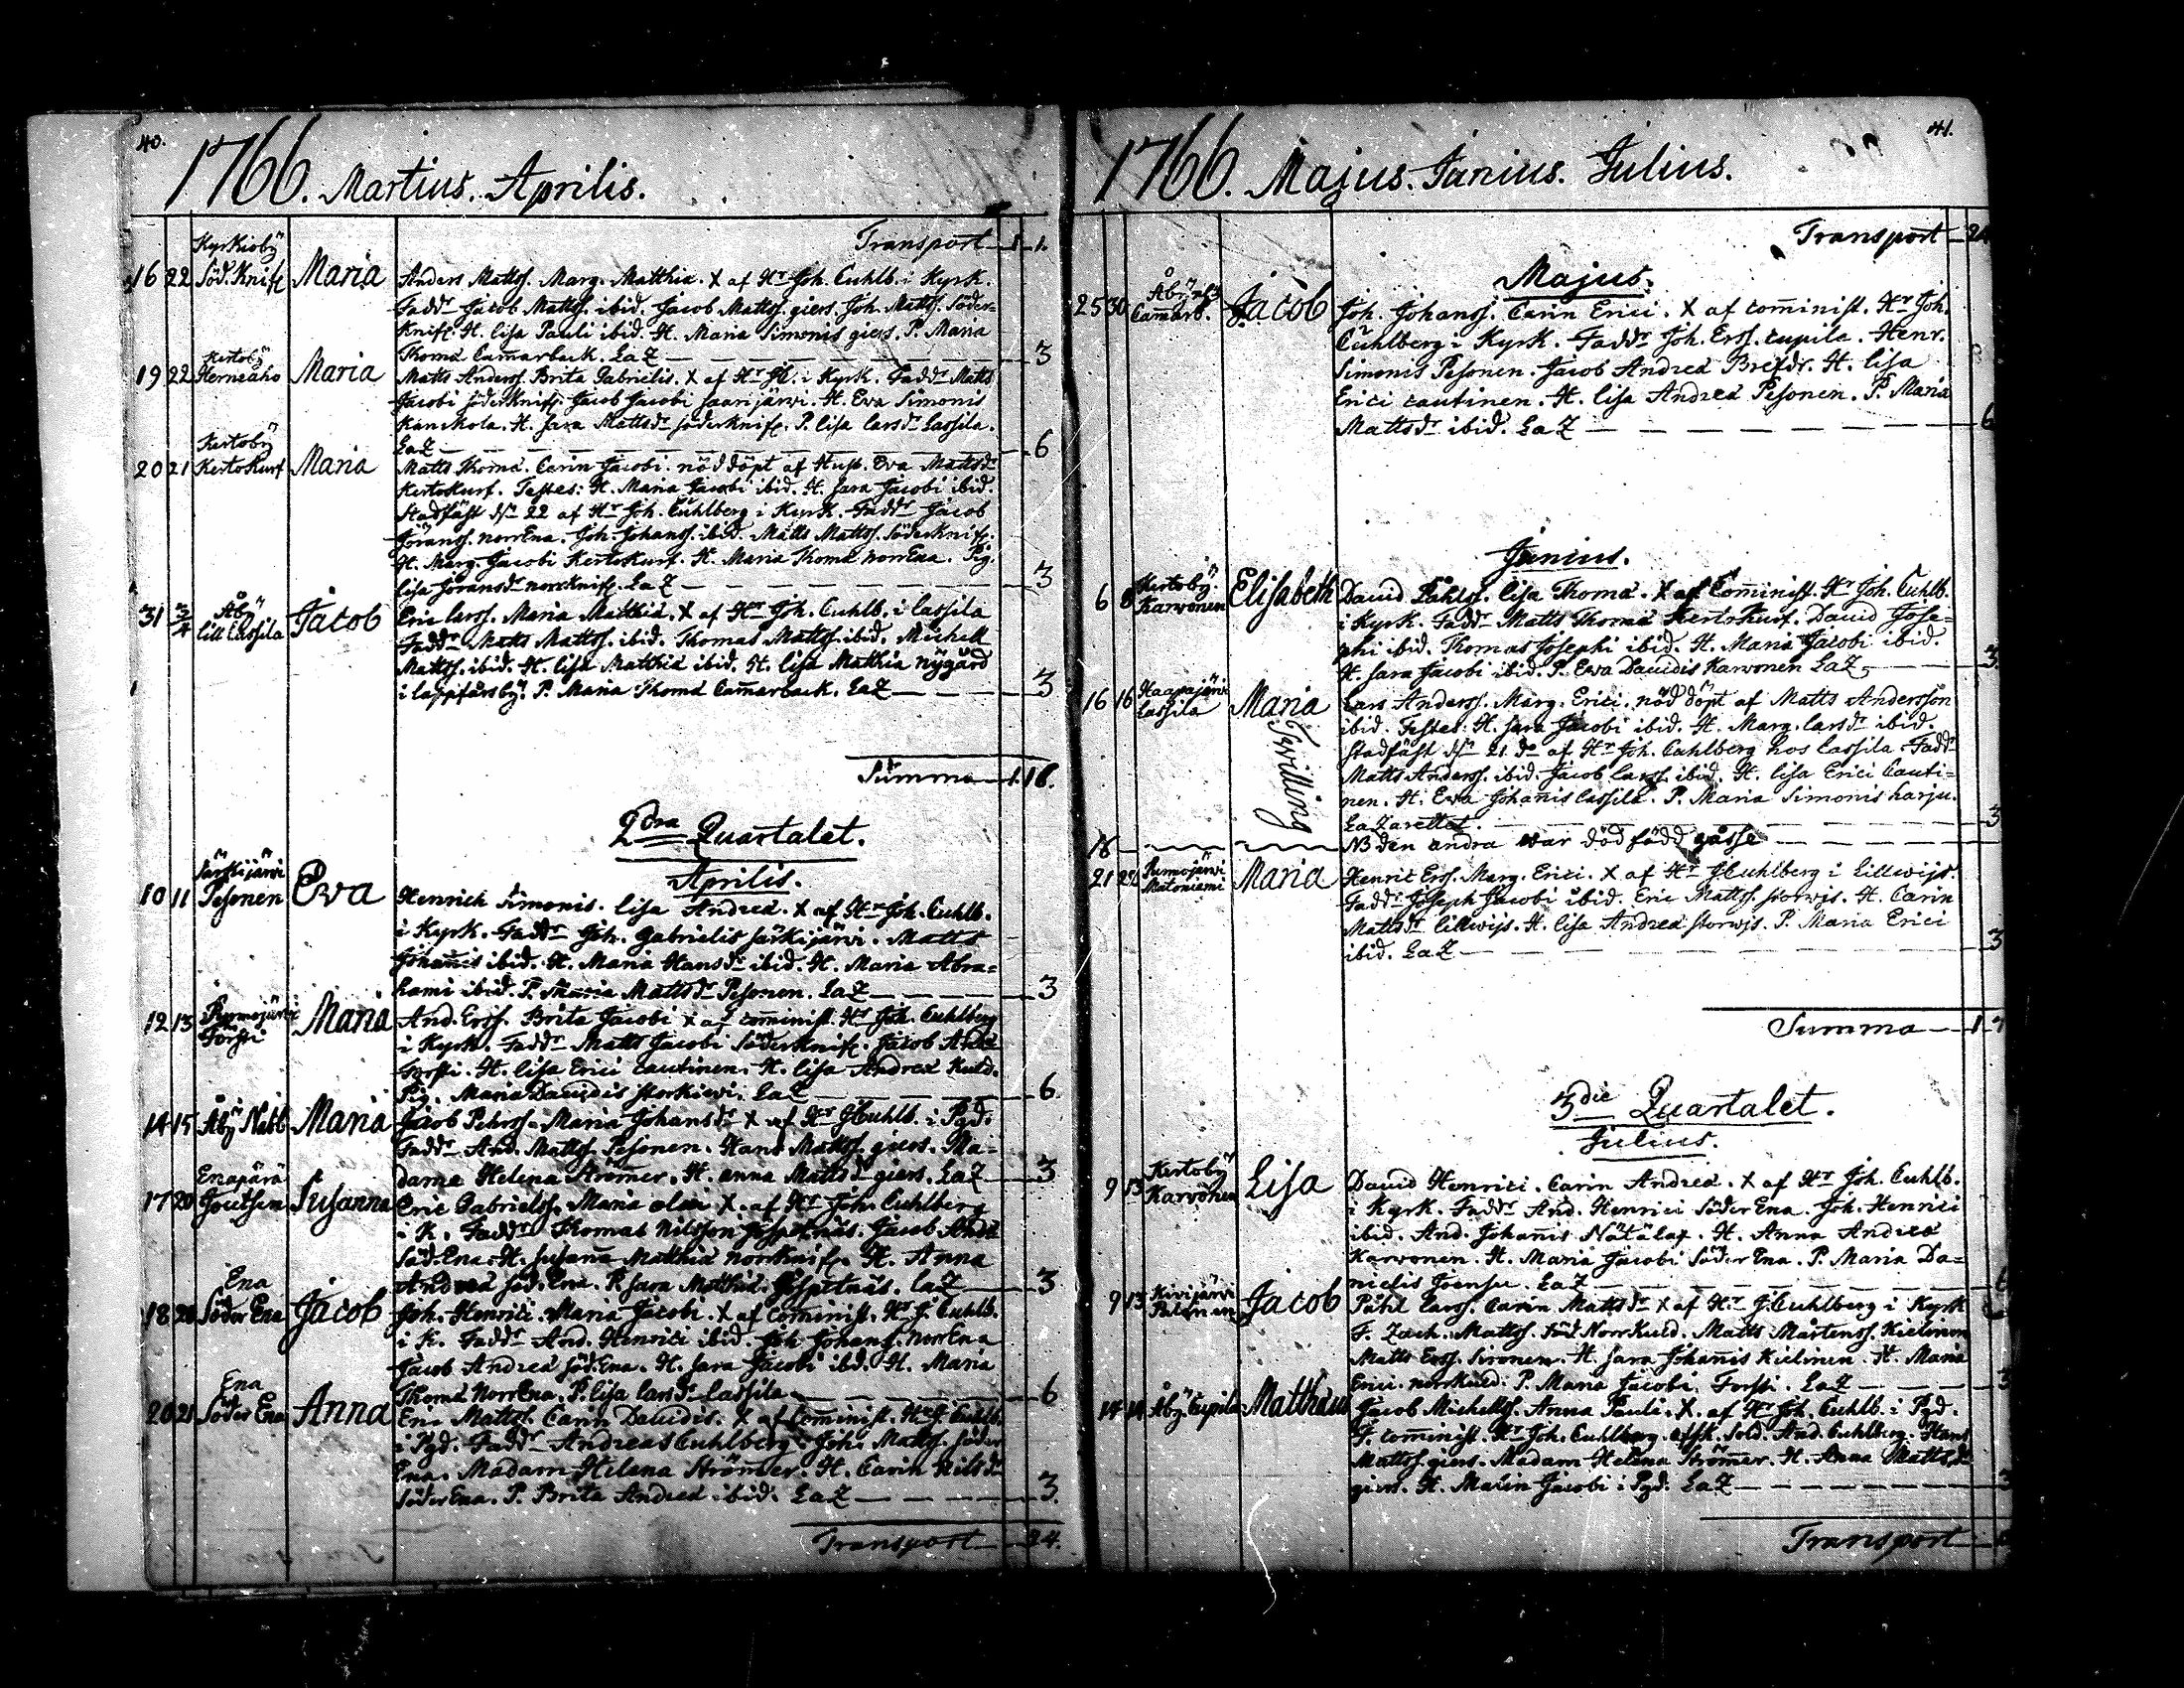 40.
1766. Martius. Aprilis.
Transport 1.1.
Kyrkioby
16 22 Söd. Knif Maria Anders Mattss. Marg. Matthiæ. X af Hr Joh. Cuhlb. i Kyrk.
Faddr Jacob Mattss. ibid. Jacob Mattss. giers. Joh. Mattss. Söder-
Knif. H. lisa Pauli ibid. H. Maria Simonis giers. P. Maria
Thomæ Camarback. LaZ 3
Kertoby
19 22 Herneaho Maria Matts Anderss. Brita Gabrielis. X af Hr JC. i Kyrk. Faddr Matts
Jacobi Söderknif. Jacob Jacobi Saarijärwi. H. Ewa Simonis
Kanskola. H. Sara Mattsdr Söderknif. P. lisa larsdr Lassila.
LaZ 6
Kertoby
20 21 Kertokurf Maria Matts Thomæ. Carin Jacobi. nöddöpt af Hust. Ewa Mattsdr
Kertokurf. Testes: H. Maria Jacobi ibid. H. Sara Jacobi ibid.
Stadfäst dn 22 af Hr Joh. Cuhlberg i Kyrk. Faddr Jacob
Jöranss. norrEna. Joh. Johanss. ibid. Matts Mattss. Söderknif.
H. Marg. Jacobi Kertokurf. H. Maria Thomæ norrEna. Pig.
lisa Joransdr norrknif. LaZ 3
Åby
31 3/4 Lill Lassila Jacob Eric larss. Maria Matthiæ. X af Hr Joh. Cuhlb. i Lassila
Faddr Matts Mattss. ibid. Thomas Mattss. ibid. Michell
Mattss. ibid. H. lisa Matthiæ ibid. H. lisa Matthiæ nygård
i lappfårsby. P. Maria Thomæ Camarback. LaZ 3
Summa 1.16.
2dra Quartalet.
Aprilis.
Särkijärwi
10 11 Pesonen Ewa Henrich Simonis. lisa Andreæ. X af Hr Joh. Cuhlb.
i Kyrk. Faddr Joh. Gabrielis Särkijärwi. Matts
Johanis ibid. H. Maria Hansdr ibid. H. Maria Abra-
hami ibid. P. Maria Mattsdr Pesonen. LaZ 3
12 13 Purmojärwi Forsti Maria And. Erss. Brita Jacobi X af cominist. Hr Joh. Cuhlberg
i Kyrk. Faddr Matts Jacobi Söderknif. Jacob And.
Forsti. H. lisa Erici Cautinen. H. lisa Andreæ Kuld.
Pig. Maria Dauidis Storkiewi. LaZ 6
14 15 Åby Nabb Maria Jacob Pehrss. Maria Johansdr X af Hr JCuhlb. i Pgd.
Faddr And. Mattss. Pesonen. Hans Mattss. giers. Ma-
dame Helena Strömer. H. anna Mattsdr giers. LaZ 3
Enapärä
17 20 Joutsen Susanna Eric Gabrielss. Maria olai X. af Hr Joh. Cuhlberg
i K. Faddr Thomas Nilsson Jåsspetnäs. Jacob And.
Söd. Ena. H. Susana Matthiæ norrknif. H. Anna
Andreæ Söd. Ena. P. Sara Matthiæ Jåsspetnäs. LaZ 3
Ena
18 20 Söder Ena Jacob Joh. Henrici. Maria Jacobi. X af Cominist. Hr J. Cuhlb.
i K. Faddr And. Henrici ibid. Joh Johanss. NorrEna
Jacob Andreæ Söd. Ena. H. Sara Jacobi ibid. H. Maria
Thomæ NorrEna. P. lisa larsdr Lassila 6
Ena
20 21 Söder Ena Anna Eric Mattss. Carin Dauidis. X af Cominist. Hr J Cuhlb.
i Pgd. Faddr Andreas Cuhlberg. Joh. Mattss. Söder
Ena. Madam Helena Strömer. H. Carin Nilsdr
SöderEna. P. Brita Andreæ ibid. LaZ 3.
Transport 24.
41.
1766. Majus. Junius. Julius.
Transport 24
Majus.
25 30 Åby Camarb. Jacob Joh. Johanss. Carin Erici. X af cominist. Hr Joh.
Cuhlberg i Kyrk. Faddr Joh. Erss. cupila. Henr.
Simonis Pesonen. Jacob Andreæ Brefdr. H. lisa
Erici cautinen. H. lisa Andreæ Pesonen. P. Maria
Mattsdr ibid. LaZ 6
Junius.
6 8 Kertoby Karwonen Elisabeth David Påhlss. lisa Thomæ. X af Cominist. Hr Joh. Cuhlb.
i Kyrk. Faddr Matts Thomæ Kertokurf. David Jose-
phi ibid. Thomas Josephi ibid. H. Maria Jacobi ibid.
H. Sara Jacobi ibid. P. Ewa Dauidis Karwonen LaZ 3
16 16 Haapajärwi Lassila Maria Lars Anderss. Marg. Erici. nöd döpt af Matts Andersson
ibid. Testes: H. Sara Jacobi ibid. H. Marg. larsdr ibid.
Tvilling
stadfäst dn 21 do af Hr Joh. Cuhlberg hos Lassila. Faddr
Matts Anderss. ibid. Jacob larss. ibid. H. lisa Erici Cauti-
nen. H. Ewa Johanis Lassila. P. Maria Simonis harju.
LaZarettet. 3
16 NB den andra war död född gåsse
21 22 Purmojärwi Matoniemi Maria Henric Erss. Marg. Erici. X af Hr JCuhlberg i Lillwijs.
Faddr Joseph Jacobi ibid. Eric Mattss. storwjs. H. Carin
Mattsdr Lillwijs. H. lisa Andreæ storwjs. P. Maria Erici
ibid. LaZ 3
Summa 1.
3die Quartalet.
Julius.
9 13 Kertoby Karwonen Lisa David Henrici. Carin Andreæ. X af Hr Joh. Cuhlb.
i Kyrk. Faddr And. Henrici Söder Ena. Joh. Henrici
ibid. And. Johanis Nätälax. H. Anna Andreæ
Karwonen. H. Maria Jacobi Söder Ena. P. Maria Da-
nielis Joensu. LaZ 6
9 13 Kiwijärwi Palonen Jacob Påhl Larss. Carin Mattsdr X af Hr JCuhlberg i Kyrk
F. Zach. Mattss. Norrkuld. Matts Mårtenss. Kielinen
Matts Erss. Sironen. H. Sara Johanis Kielinen. H. Maria
Erici. norrkuld. P. Maria Jacobi Forsti. LaZ 3
14 14 Åby Cupila Matthæus Jacob Michellss. Anna Pauli. X. af Hr Joh. Cuhlb. i Pgd.
F. cominist. Hr Joh. Cuhlberg. afsk. Sold. And. Cuhlberg. Hans
Mattss. giers. Madam Helena Strömer. H. Anna Mattsdr
giers. H. Malin Jacobi i Pgd. LaZ 3
Transport